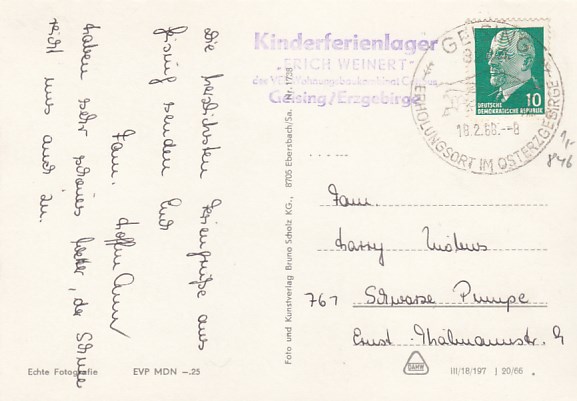 Die herzlichsten Feriengrüße aus
Geising senden Euch
Fam. Hoffmann
haben sehr schönes Wetter, der Schnee
reicht uns auch zu.
Kinderferienlager
"ERICH WEINERT"
des VEB Wohnungsbaukombinat
Geising/Erzgebirge
GEISING
ERHOLUNGSORT IM OSTERZGEBIRGE
18.2.68.--8
DEUTSCHE
DEMOKRATISCHE REPUBLIK
10
846
Foto und Kunstverlag Bruno Scholz KG., 8705 Ebersbach/Sa. Nr. 1738
Fam.
Harry
761 Schwarze Pumpe
Ernst-Thälmannstr. 9
Echte Fotografie EVP MDN –.25
DAHW
III/18/197 J 20/66